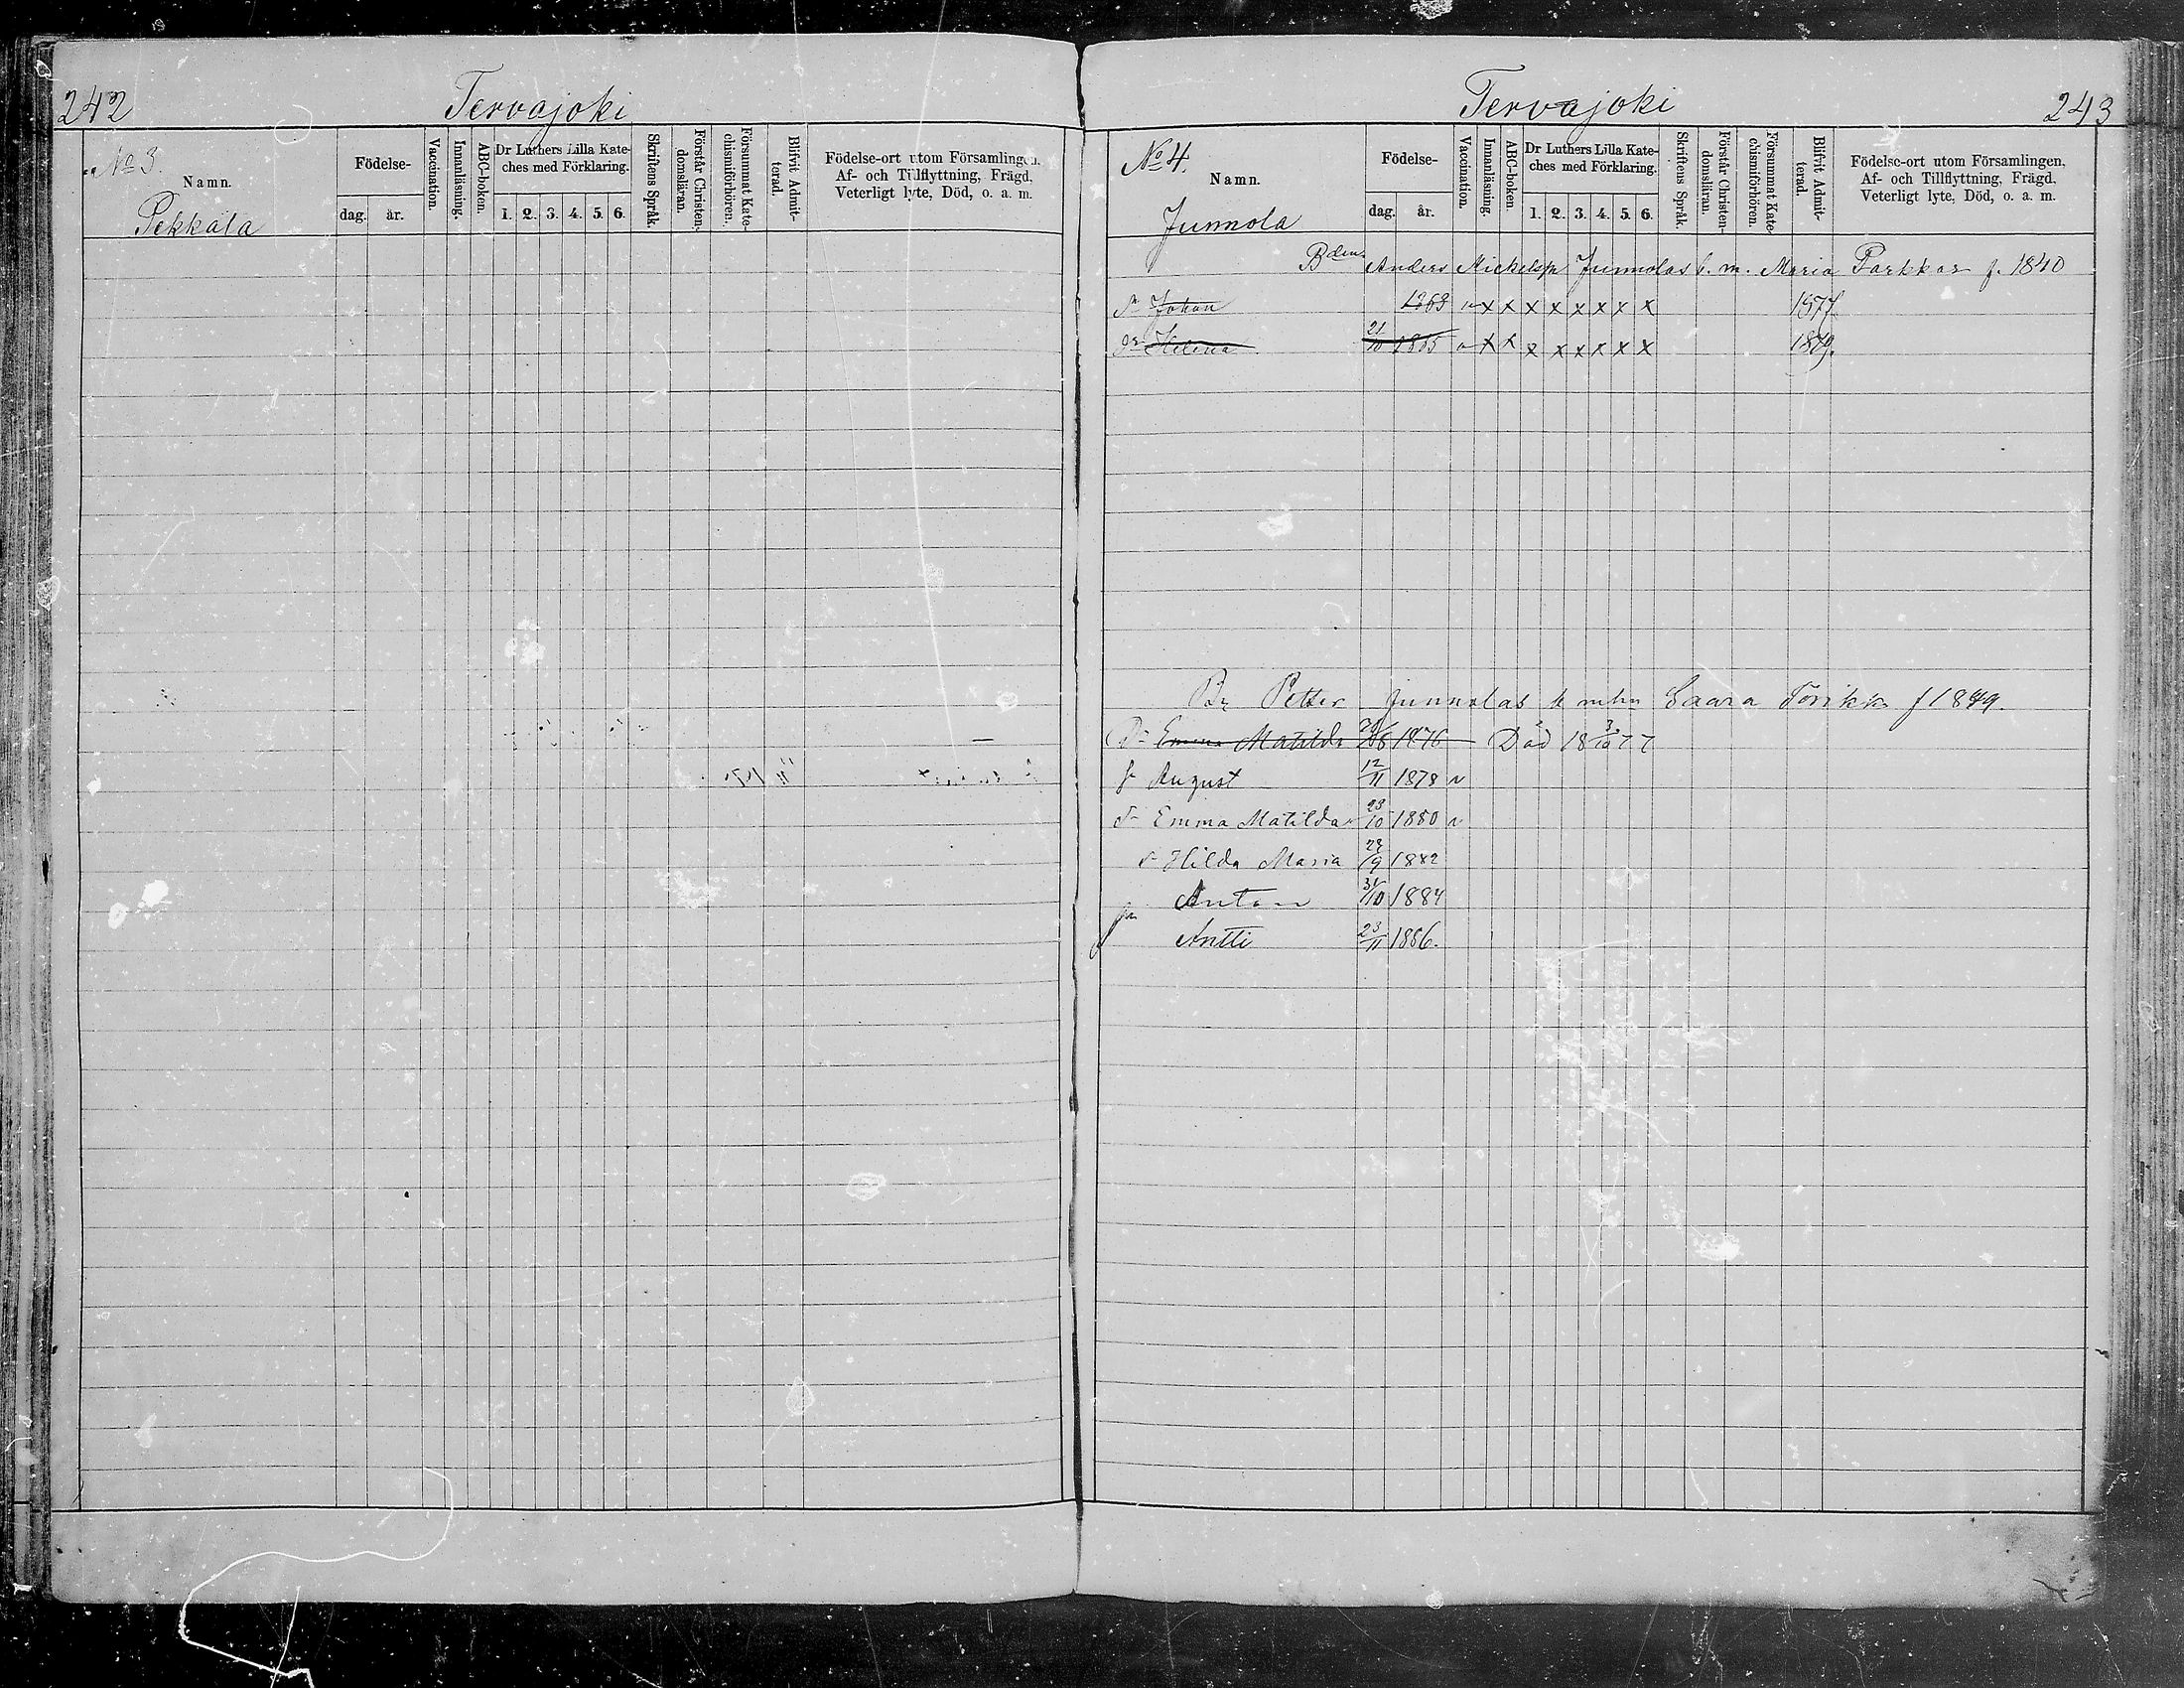 242
Tervajoki
No 3.
Namn.
Pekkala
Födelse-
dag. år.
Vaccination.
Innanläsning.
ABC-boken.
Dr Luthers Lilla Kate-
ches med Förklaring.
1. 2. 3. 4. 5. 6.
Skriftens Språk.
Förstår Christen-
domsläran.
Försummat Kate-
chismiförhören.
Blifvit Admit-
terad.
Födelse-ort utom Församlingen.
Af- och Tillflyttning, Frägd,
Veterligt lyte, Död, o. a. m.
Tervajoki
243
No 4.
Namn.
Junnola
Födelse-
dag. år.
Vaccination.
Innanläsning.
ABC-boken.
Dr Luthers Lilla Kate-
ches med Förklaring.
1. 2. 3. 4. 5. 6.
Skriftens Språk.
Förstår Christen-
domsläran.
Försummat Kate-
chismiförhören.
Blifvit Admit-
terad.
Födelse-ort utom Församlingen,
Af- och Tillflyttning, Frägd,
Veterligt lyte, Död, o. a. m.
Bdens Anders Michelsn Junnolas b. m. Maria Parkkar f. 1840
Johan 1863 x x x x x x x x 1877
Helena 21/10 1865 x x x x x x x x 1879.
Bn Petter Junnolas Saara Torikka f 1849.
Emma Matilda 1876 Död 18 3/10 77
August 12/11 1878 v
Emma Matilda 28/10 1880 v
Hilda Maria 22/9 1882
Anton 31/10 1884
Antti 23/11 1886.